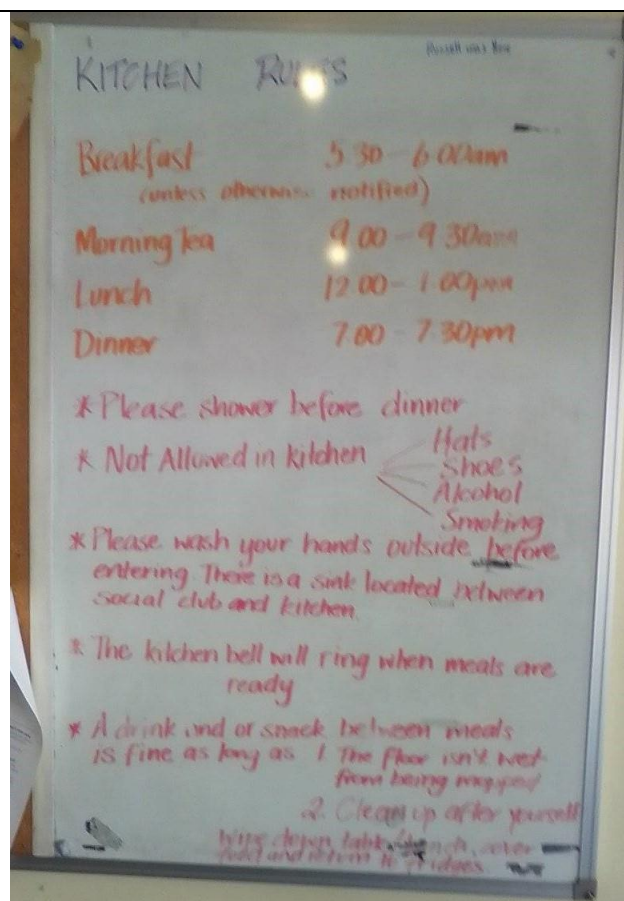 Russell was Here
KITCHEN RULES
Breakfast 5.30 - 6.00am
(unless otherwise notified)
Morning Tea 9.00 - 9.30am
Lunch 12.00 - 1.00pm
Dinner 7.00 - 7.30pm
* Please shower before dinner
* Not Allowed in kitchen Hats
Shoes
Alcohol
Smoking
* Please wash your hands outside before
entering. There is a sink located between
social club and kitchen.
* The kitchen bell will ring when meals are
ready
* A drink and or snack between meals
is fine as long as 1. The floor isn't wet
from being mopped
2. Clean up after yourself
Wipe down table/bench, cover
food and return to fridges.